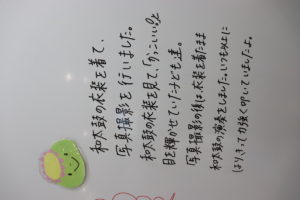 和太鼓の衣装を着て、
写真撮影を行いました。
和太鼓の衣装を見て、「かっこいい!!」と
目を輝かせていた子ども達。
写真撮影の後は、衣装を着たまま
和太鼓の演奏をしました。いつも以上に
はりきって力強く叩いていましたよ。